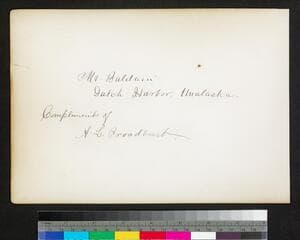 Mr. Baldwin
Dutch Harbor, Unalaska.
Compliments of
A. L. Broadbent.